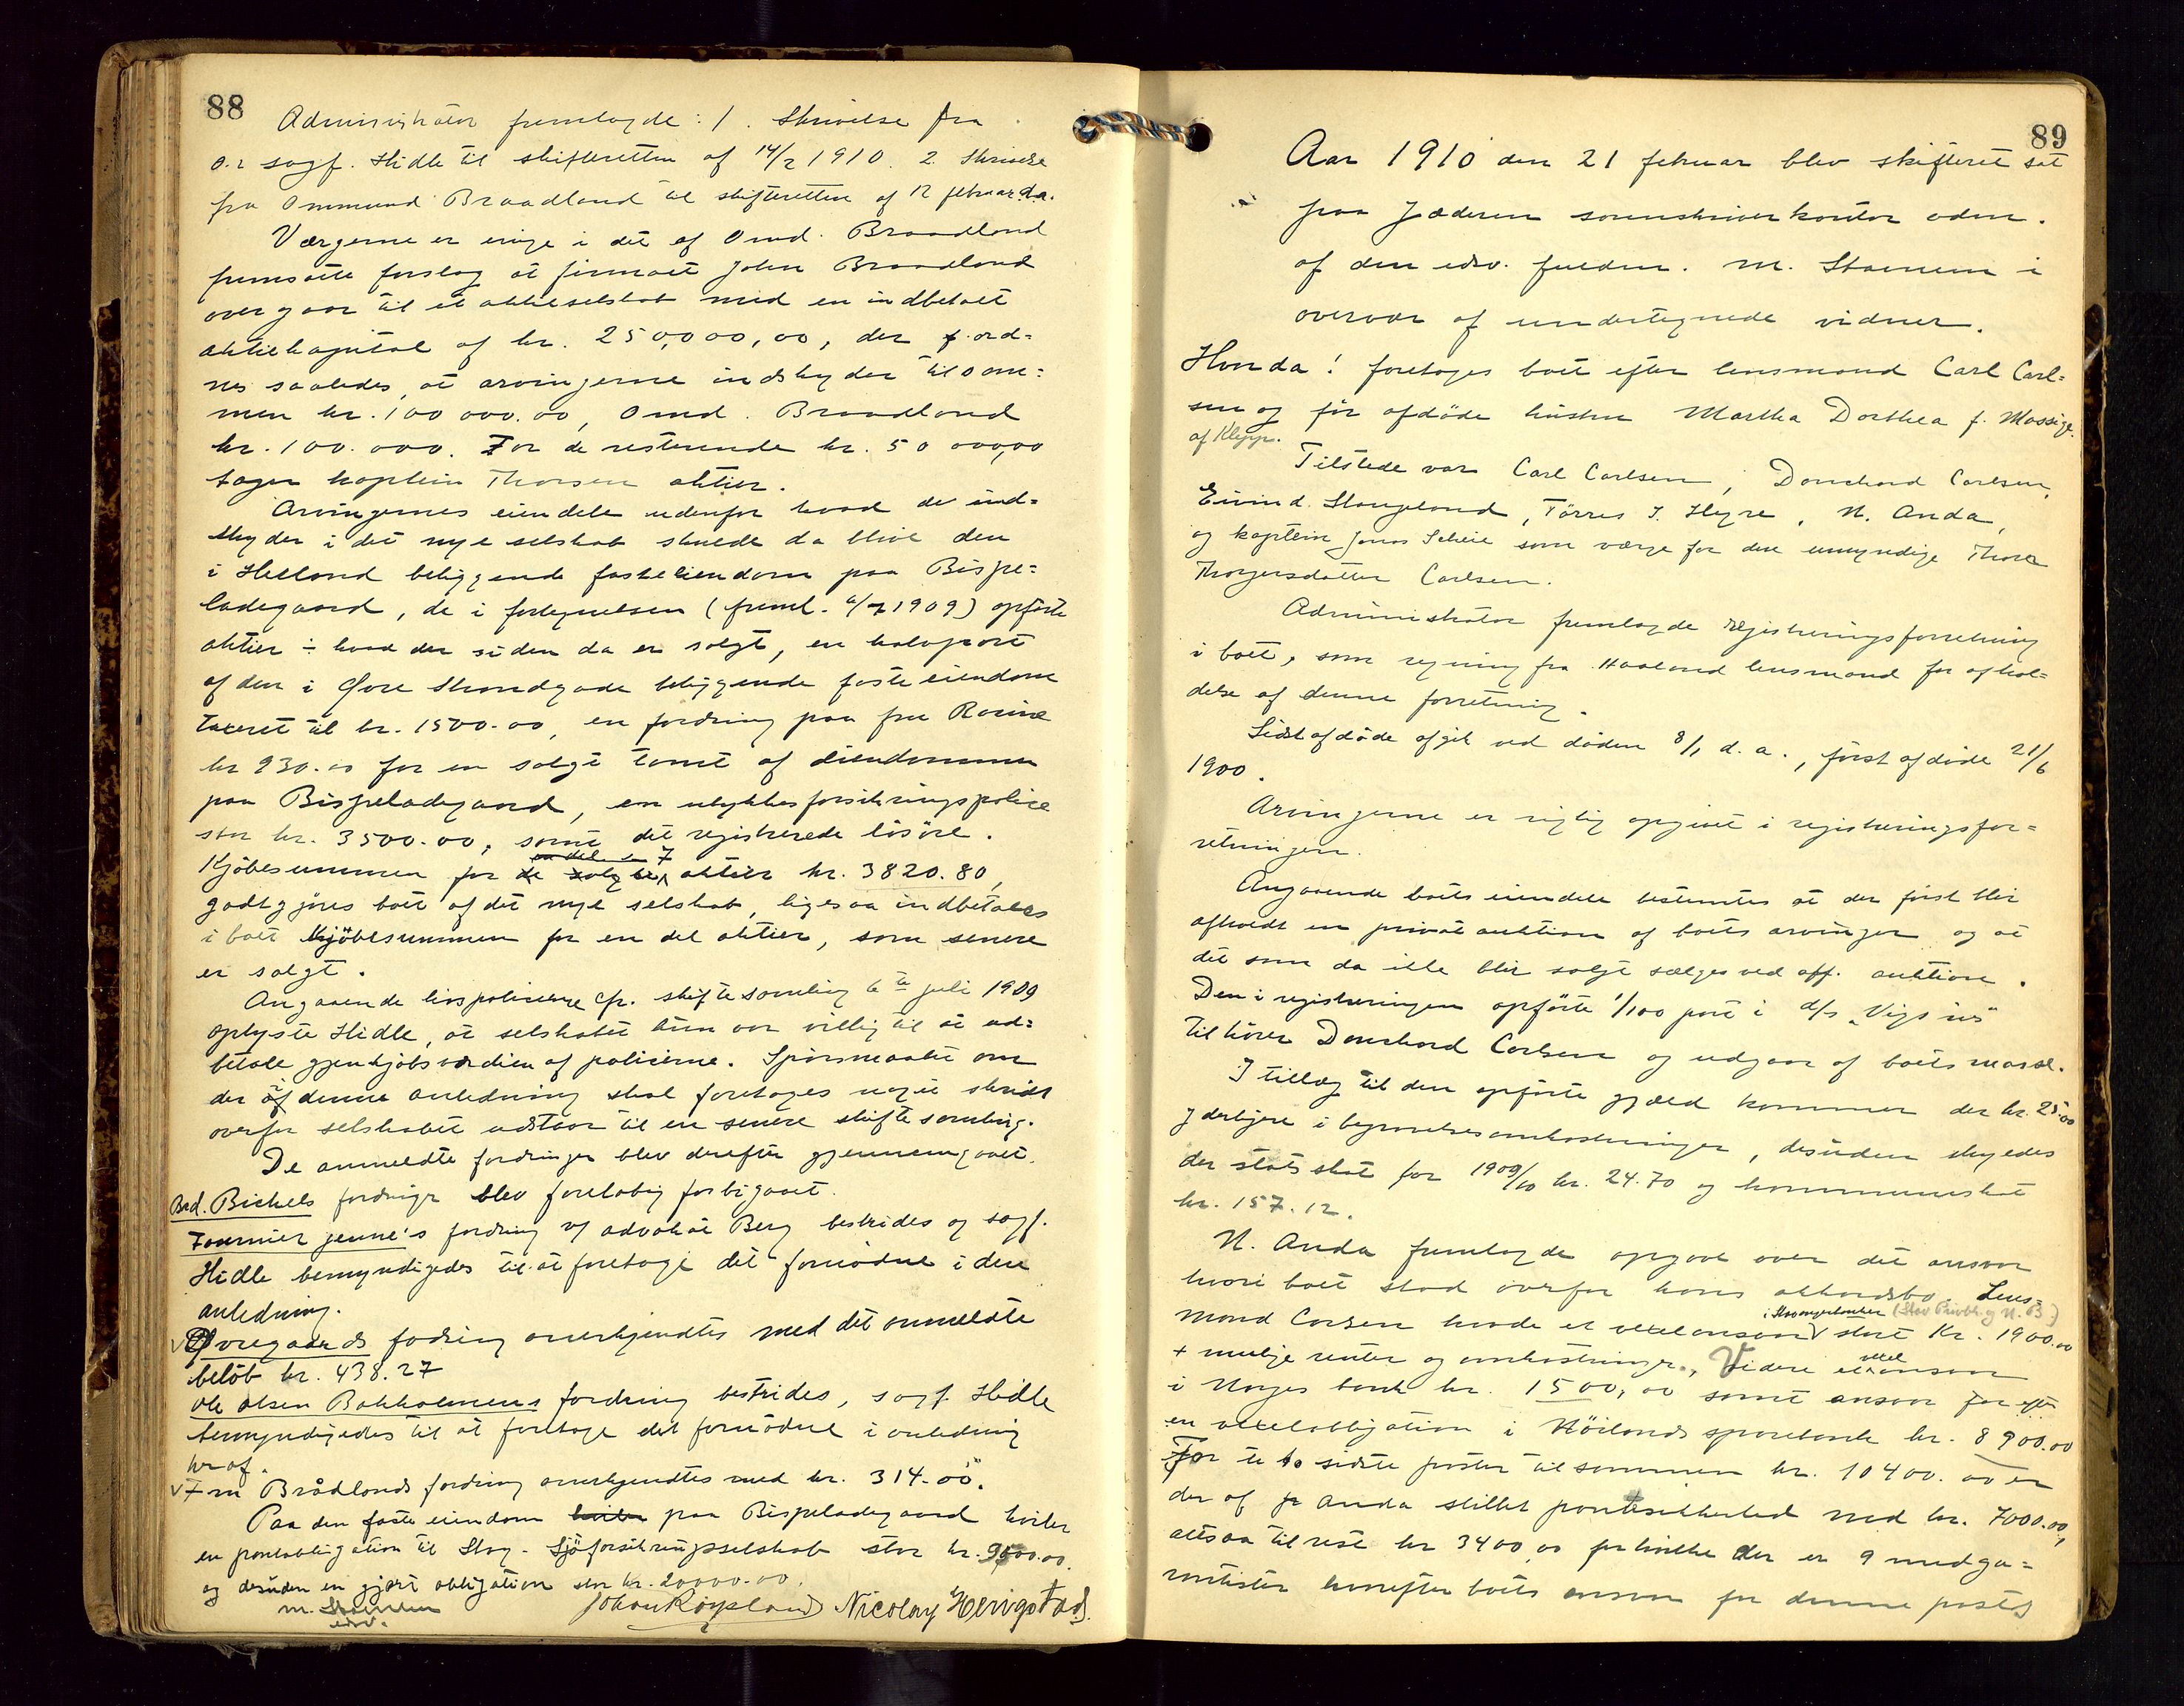 88
Administrator fremlagde: 1. Skrivelse fra
o.r sagf. Hidle til skifteretten af 14/2 1910. 2. Skrivelse
fra Ommund Braadland til skifteretten af 12 februar d.a.
Værgerne er enige i det af Omd. Braadland
fremsatte forslag at firmaet John Braadland
overgaar til et aktieselskab med en indbetalt
aktiekapital af kr. 250,000,00, der ord=
nes saaledes, at arvingerne indskyder tilsam=
men kr. 100 000.00, Omd. Braadland
kr. 100.000. For de resterende kr. 50 000,00
tager kaptein Thorsen aktier.
Arvingernes eiendele udenfor hvad de ind=
skyder i det nye selskab skulde da blive den
i Hetland beliggende faste eiendom paa Bispe=
ladegaard, de i fortegnelsen (freml. 6/7 1909) opførte
aktier ÷ hvad der siden da er solgt, en halvpart
af den i Øvre Strandgade beliggende faste eiendom
taxeret til kr. 1500.00, en fordring paa fru Rosine
kr 930.00 for en solgt tomt af eiendommen
paa Bispeladegaard, en ulykkesforsikringspolice
stor kr. 3500.00, samt det registrerede løsøre.
en del 7
Kjöbesummen for de solgte aktier kr. 3820.80,
godtgjøres boet af det nye selskab, ligesaa indbetales
i boet kjöbesummen for en del aktier, som senere
er solgt.
Angaaende livspolicerne cfr. skiftesamling 6te juli 1909
oplyste Hidle, at selskabet kun var villig til at ud=
betale gjenkjöbsværdien af policerne. Spørsmaalet om
der i denne anledning skal foretages noget skridt
overfor selskabet udstaar til en senere skiftesamling.
De anmeldte fordringer blev derefter gjennemgaaet.
Brd. Bickels fordringer blev foreløbig forbigaaet.
Fournier jeune's fordring v/ advokat Berg bestrides og sagf.
Hidle bemyndigedes til at foretage det fornødne i den
anledning.
√ Øvregaards fordring anerkjendtes med det anmeldte
beløb kr. 438.27
Ole Olsen Bakholmens fordring bestrides, sagf. Hidle
bemyndigedes til at foretage det fornødne i anledning
heraf.
√ Fru Brådlands fordring anerkjendtes med kr. 314.00.
Paa den faste eiendom hviler paa Bispeladegaard hviler
en pantobligation til Stav. Sjöforsikringsselskab stor kr. 9000.00.
og desuden en gjæst obligation stor kr. 20000.00.
M. Staenem Johan Røysland Nicolay Herigstad.
edsv.
89
Aar 1910 den 21 februar blev skifteret sat
paa Jæderen sorenskriverkontor adm.
af den edsv. fuldm. M. Staenem i
overvær af undertegnede vidner.
Hvor da! foretoges boet efter lensmand Carl Carl=
sen og før afdöde hustru Martha Dorthea f. Mossige
af Klepp.
Tilstede var Carl Carlsen, Danchard Carlsen,
Eivind Stangeland, Tørres J. Hegre, N. Anda,
og kaptein Jonas Scheie som værge for den umyndige Thora
Thorgersdatter Carlsen.
Administrator fremlagde registreringsforretning
i boet, som regning fra Haaland lensmand for afhol=
delse af denne forretning.
Sidst afdøde afgik ved døden 8/1 d.a., først afdøde 21/6
1900.
Arvingerne er rigtig opgivet i registreringsfor=
retningen.
Angaaende boets eiendele bestemtes at der først blir
afholdt en privat auktion af boets arvinger og at
det som da ikke blir solgt sælges ved off. auktion.
Den i registreringen opførte 1/100 part i d/s "Vigsnes"
tilhører Danchard Carlsen og udgaar af boets masse.
I tillæg til den opførte gjæld kommer der kr. 25.00
yderligere i begravelsesomkostninger, desuden skyldes
der statsskat for 1909/10 kr. 24.70 og kommuneskat
kr. 157.12.
N. Anda fremlagde opgave over det ansvar
hvori boet stod overfor hans akkordsbo. Lens=
i Stavangerbanker (Stav. Privbk. og N. B.)
mand Carlsen havde et vexelansvar stort Kr. 1900.00
vexel
+ mulige renter og omkostninger. Videre et ansvar
i Norges bank kr. 1500,00 samt ansvar for efter
en vexelobligation i Höilands sparebank kr. 8900.00
For te to sidste poster tilsammen kr. 10400.00 er
der af Anda stillet pantesikkerhed med kr. 7000.00,
altsaa til rest kr 3400,00 for hvilke der er 9 medga=
rantister hvorefter boets ansvar for denne post